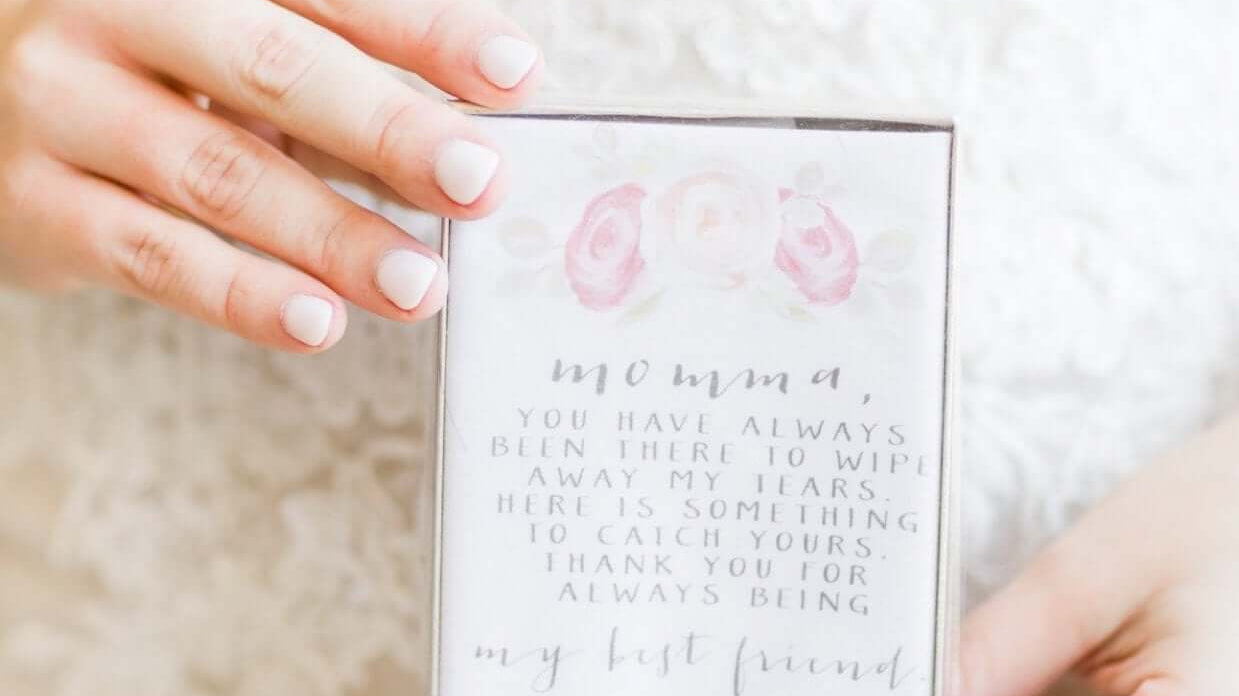 momma,
YOU HAVE ALWAYS
BEEN THERE TO WIPE
AWAY MY TEARS.
HERE IS SOMETHING
TO CATCH YOURS.
THANK YOU FOR
ALWAYS BEING
my best friend.